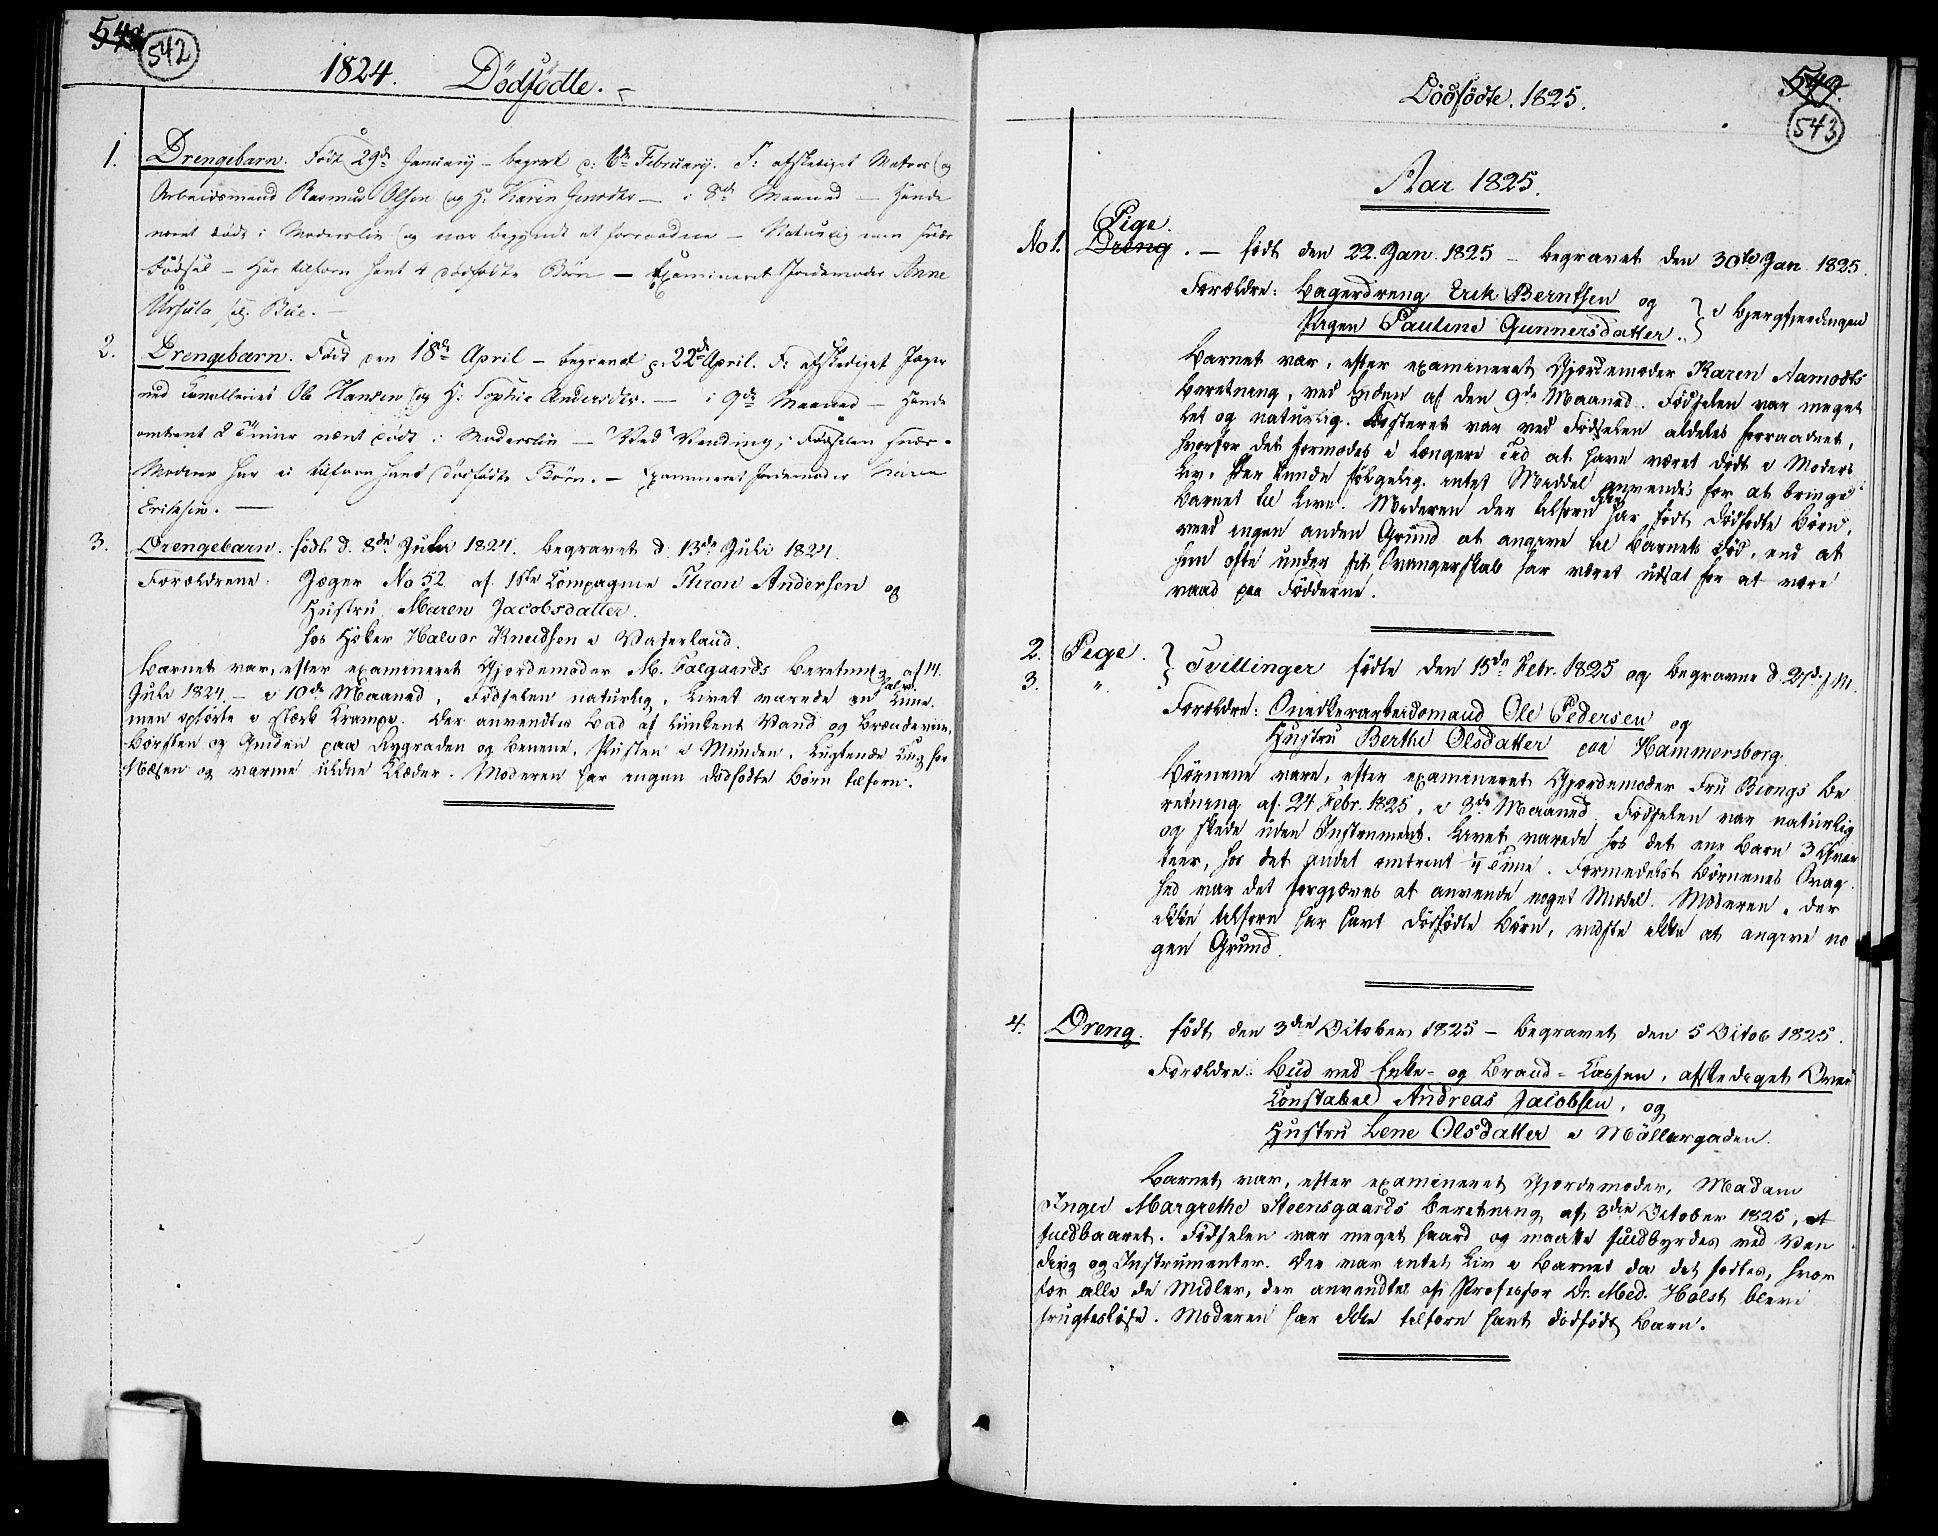 542
1824. Dødfødte.
1. Drengebarn. Født 29de January – begravet d: 6te February. F: afskediget Matros og
Arbeidsmand Rasmus Olsen og H: Karen – i 8de Maaned – Havde
været død i Modersliv og var begyndt at forraadne – Naturlig men svær
Fødsel – Har tilforn havt 4 dødfødte Børn – Examineret Jordemoder Anne
Ursula sal. Bue. –
2. Drengebarn. Født den 18de April – begravet d. 22de April. F: afskediget Jæger
ved Ole Hansen og H: Sophie Andersdtr. – i 9de Maaned – Havde
omtrent 2 Timer været død i Modersliv – Ved Vending; Fødselen svær –
Moderen har ei tilforn havt dødfødte Børn. – Examineret Jordemoder Karen
Eriksen. –
3. Drengebarn. født d. 8de Juli 1824. begravet d. 13de Juli 1824.
Forældrene: Jæger No 52 af 1ste Compagnie Thron Andersen og
Hustru Maren Jacobsdatter.
hos Høker Halvor Knudsen i Vaterland.
Barnet var, efter examineret Gjordemoder M. Falgaards Beretning af 14.
Juli 1824 – i 10de Maaned. Fødselen naturlig. Livet varede en halv Time.
men ophørte i stærk Krampe. Der anvendtes Bad af lunkent Vand og Brændeviin,
Børsten og Gniden paa Rygraden og Benene, Pusten i Munden, lugtende for
Næsen og varme uldne Klæder. Moderen har ingen dødfødte Børn tilforn.
543
Dødfødte. 1825.
Aar 1825.
Pige.
No 1. Dreng. – født den 22. Jan. 1825 – begravet den 30te Jan. 1825.
Forældre: Bagerdreng Erik Berntsen og
Pigen Pauline Gunnersdatter. } i Bjergfjerdingen
Barnet var, efter examineret Gjordemoder Karen Aamodts
Beretning, ved Enden af den 9de Maaned. Fødselen var meget
let og naturlig. Fosteret var ved Fødselen aldeles forraadnet,
hvorfor det formodes i længere Tid at have været dødt i Moders
Liv. Der kunde følgelig intet Middel anvendes for at bringe
Barnet til Live. Moderen der tilforn har født dødfødte Børn,
veed ingen anden Grund at angive til Barnets Død, end at
hun ofte under sit Svangerskab har været udsat for at være
vaad paa Fødderne.
2. Pige.
3. " } Tvillinger fødte den 15de Febr. 1825 og begravne d. 27de s. M.
Forældre: Snedkerarbeidsmand Ole Pedersen og
Hustru Berthe Olsdatter paa Hammersborg.
Børnene vare, efter examineret Gjordemoder Fru Biongs Be
retning af 24 Febr. 1825, i 3de Maaned. Fødselen var naturlig
og skede uden Instrument. Livet varede hos det ene Barn 3 Qvar
teer, hos det andet omtrent 1/4 Time. Formedelst Børnenes Svag
hed var det forgjæves at anvende noget Middel. Moderen, der
ikke tilforn har havt dødfødte Børn, vidste ikke at angive no
gen Grund.
4. Dreng. født den 3die October 1825 – begravet den 5 Octob 1825.
Forældre: Bud ved Enke- og Brand-Cassen, afskediget Over
Constabel Andreas Jacobsen, og
Hustru Lene Olsdatter i Møllergaden.
Barnet var, efter examineret Gjordemoder, Madam
Inger Margrethe Steensgaards Beretning af 3die October 1825, et
fuldbaaret. Fødselen var meget haard og maatte fuldbyrdes ved Ven
ding og Instrumenter. Der var intet Liv i Barnet da det fødtes, hvor
for alle de Midler, der anvendtes af Professor Dr. Med. Holst bleve
frugtesløse. Moderen har ikke tilforn havt dødfødt Barn.